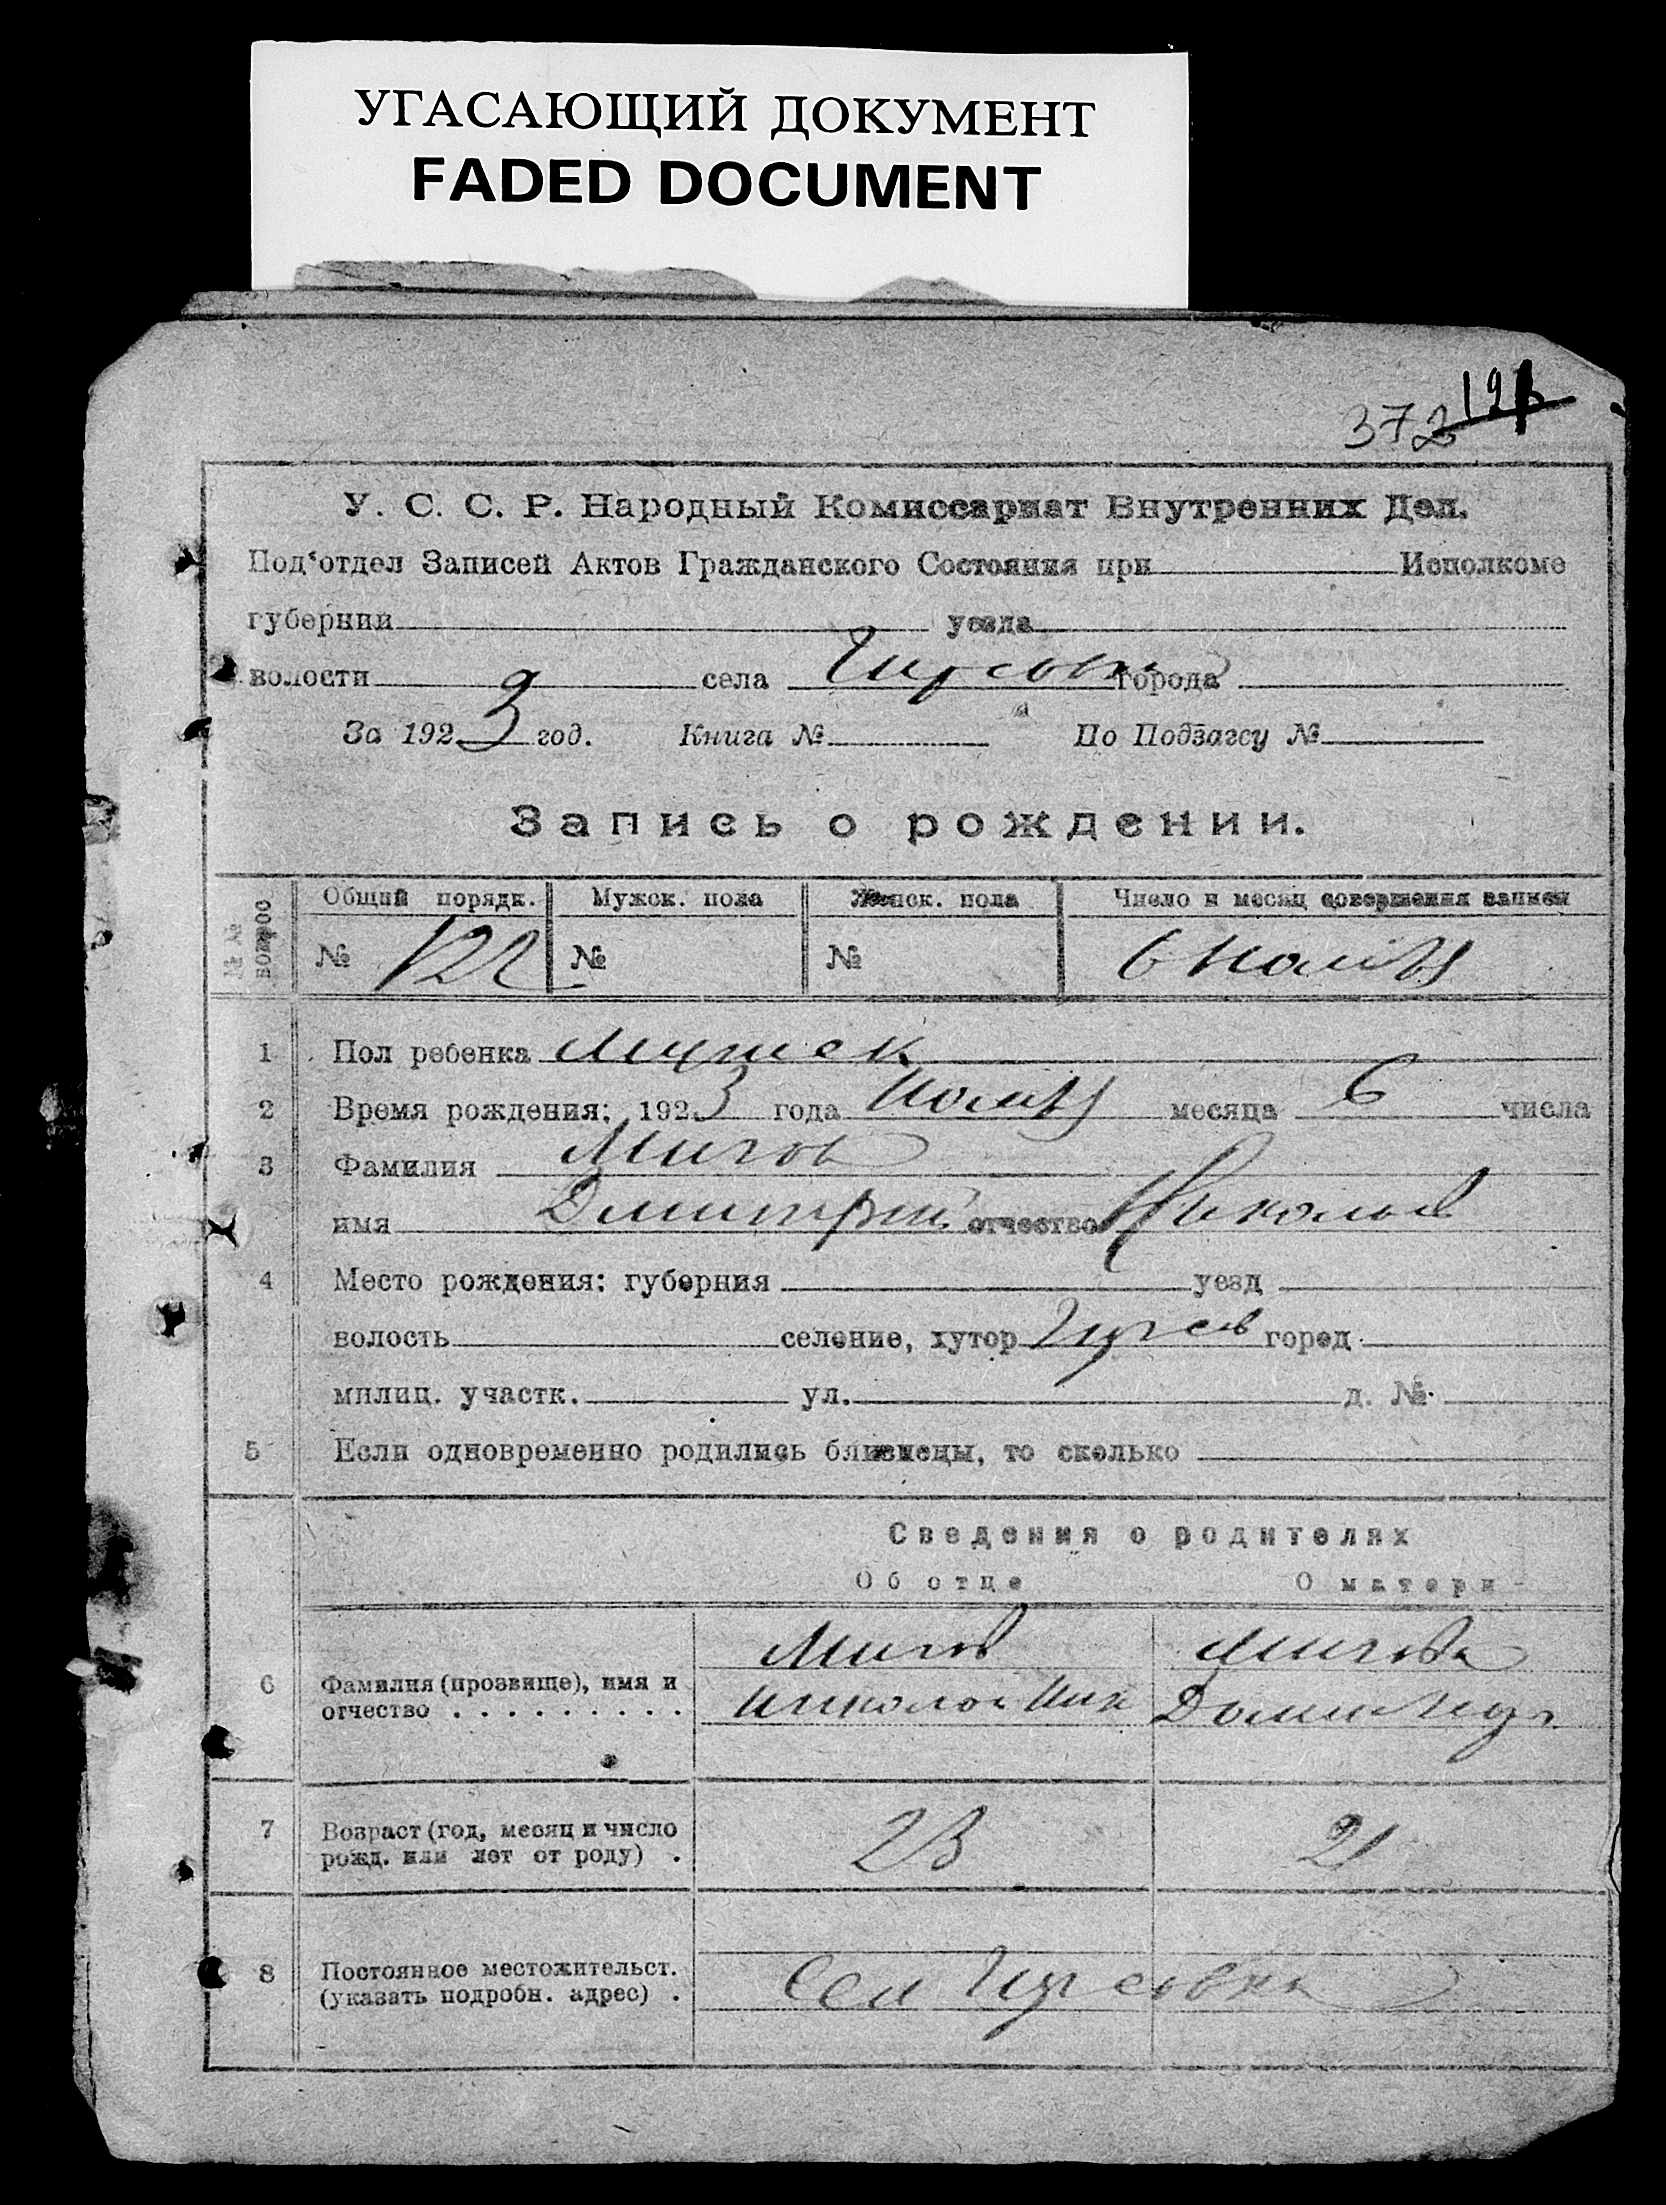 УГАСАЮЩИЙ ДОКУМЕНТ
FADED DOCUMENT
372
У. С. С. Р. Народный Комиссариат Внутренних Дел.
Под‘отдел Записей Актов Гражданского Состояния при Исполкоме
губернии уезда
волости села города
За 1923 год. Книга № По Подзагсу №
Запись о рождении.
№ № вопрос
Общий порядк. Мужск. пола Женск. пола Число и месяц совершения записи
№ 122 № № 6
1 Пол ребенка
2 Время рождения: 1923 года месяца 6 числа
3 Фамилия Мигов
имя Дмитрий отчество Николаев
4 Место рождения: губерния уезд
волость селение, хутор город
милиц. участк. ул. д. №
5 Если одновременно родились близнецы, то сколько
Сведения о родителях
Об отце О матери
Мигов Мигова
6 Фамилия (прозвище), имя и отчество . . . . . . . . . Николай Ник
7 Возраст (год, месяц и число рожд. или лет от роду) . 23 21
8 Постоянное местожительст. (указать подробн. адрес) . Сел